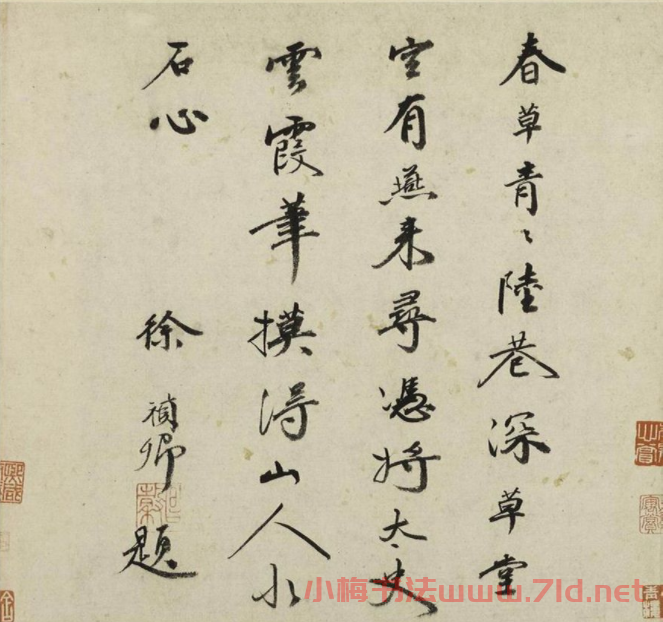 春草青〻陸巷深草堂
空有燕来尋憑將太史
雲霞筆摸得山人水
石心 徐禎卿題
小梅书法www.7ld.net